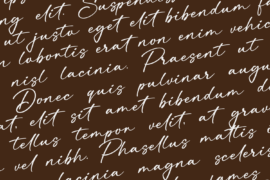 ng elit. Suspendiss
ut justo eget elit bibendum
lobortis erat non enim vehic
nisl lacinia. Praesent ut
Donec quis pulvinar augu
at, elit sit amet bibendum d
tellus tempor velit, at grav
vel nibh. Phasellus mattis
lacinia magna sceleris